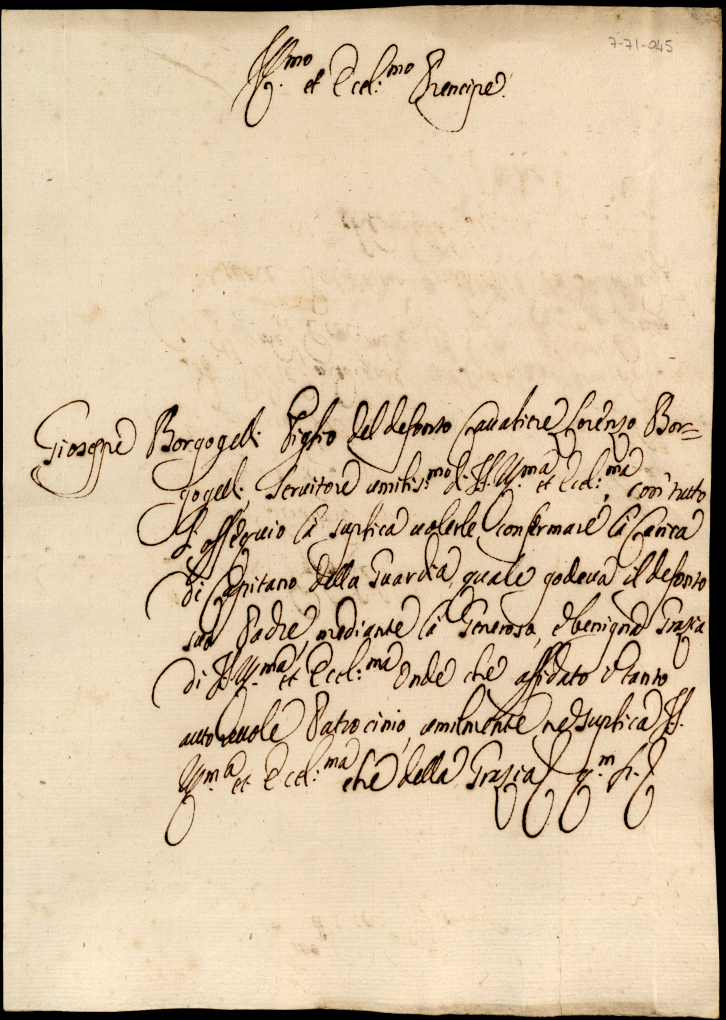 7-71-045
Ill.mo et Eccl:mo Prencipe
Gioseppe Borgogelli figlio del defonto Cavaliere Lorenzo Bor=
gogelli, servitore umilis:mo di V. Ill.ma et Eccl:ma, con tutto
l'ossequio la suplica volerle confermare la carica
di Capitano della Guardia, quale godeva il defonto
suo Padre, mediante la Generosa, e benigna Grazia
di V. Ill.ma et Eccl:ma Onde che affidato è tanto
autorevole Patrocinio, umilmente ne suplica V.
Ill.ma et Eccl:ma che della Grazia